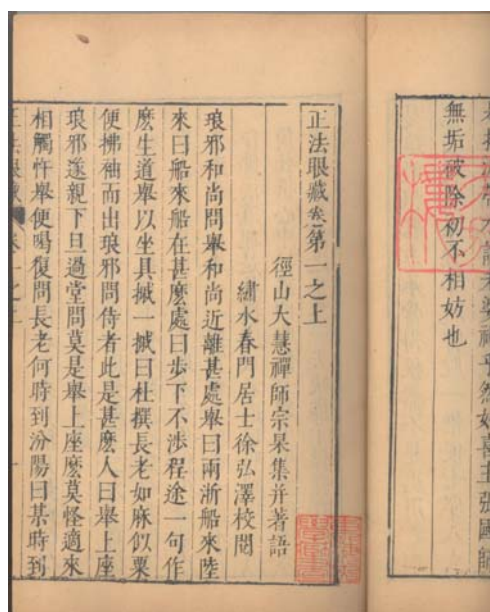 然如喜主張國師
無垢破除初不相妨也
正法眼藏卷第一之上
徑山大慧禪師宗杲集并著語
繡水春門居士徐弘澤校閱
瑯邪和尚問舉和尚近離甚處舉曰兩浙船來陸
來曰船來船在甚麽處曰步下不涉程途一句作
麽生道舉以坐具摵一摵曰杜撰長老如麻似粟
便拂袖而出瑯邪問侍者此是甚麽人曰舉上座
瑯邪遂親下旦過堂問莫是舉上座麽莫怪適來
相觸忤舉便喝復問長老何時到汾陽曰某時到
正法眼藏 卷一之上 一